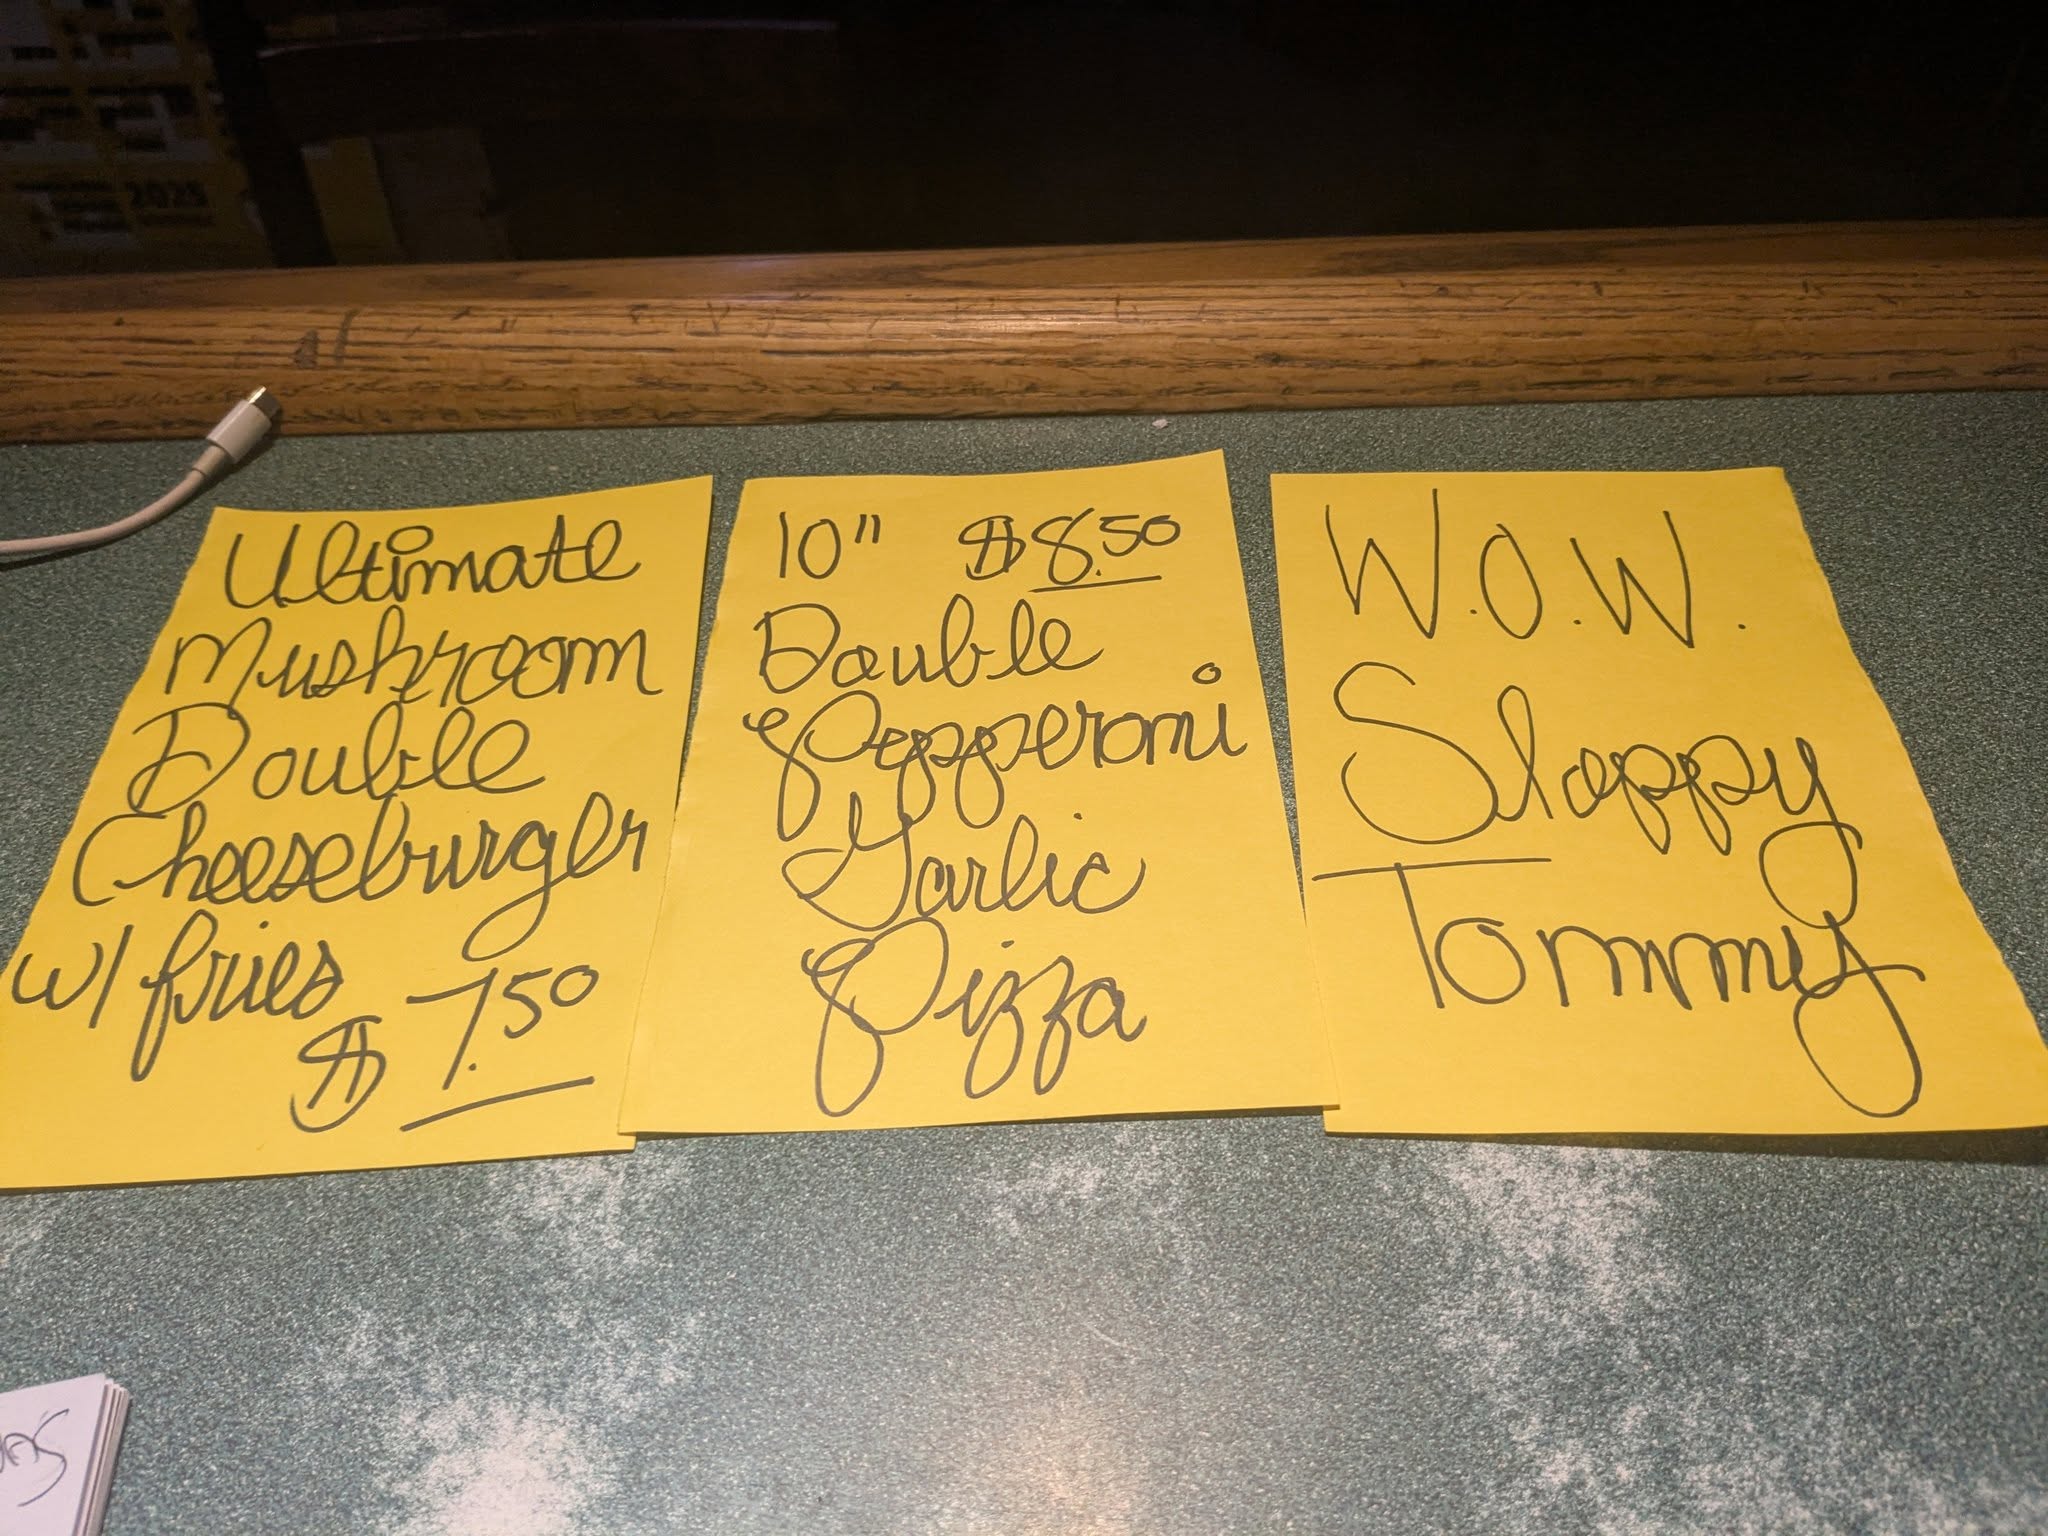 Ultimate
Mushroom
Double
Cheeseburger
w/ fries
$7.50
10" $8.50
Double
Pepperoni
Garlic
Pizza
W.O.W.
Sloppy
Tommy
2025